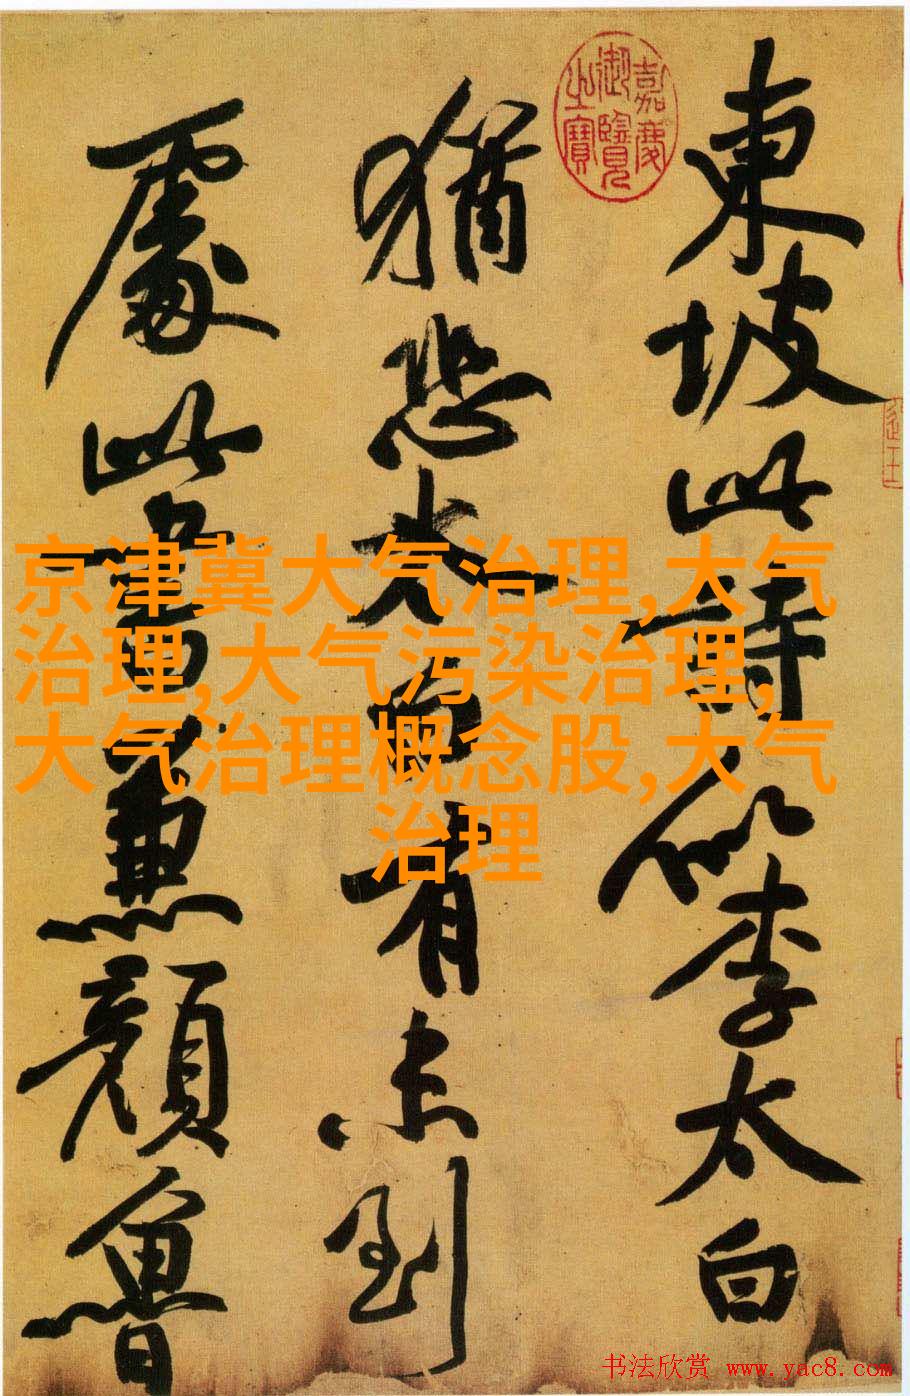 嘉慶
御覽
之寶
東坡此詩似李太白
猶恐太白有未到
處此書兼顏魯
京津冀大气治理,大气
治理,大气污染治理,
大气治理概念股,大气
治理
书法欣赏 www.yac8.com